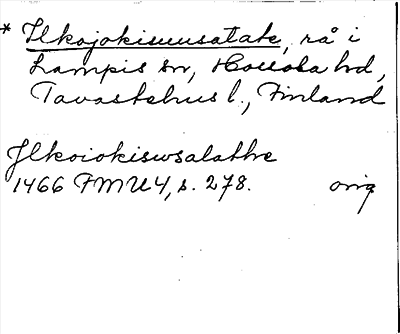 * Ilkojokisuusatate, rå i
Lampis sn, Hollola hd,
Tavastehus l., Finland
Jlkoiokiswsalathe
1466 FMU 4, s. 278. orig